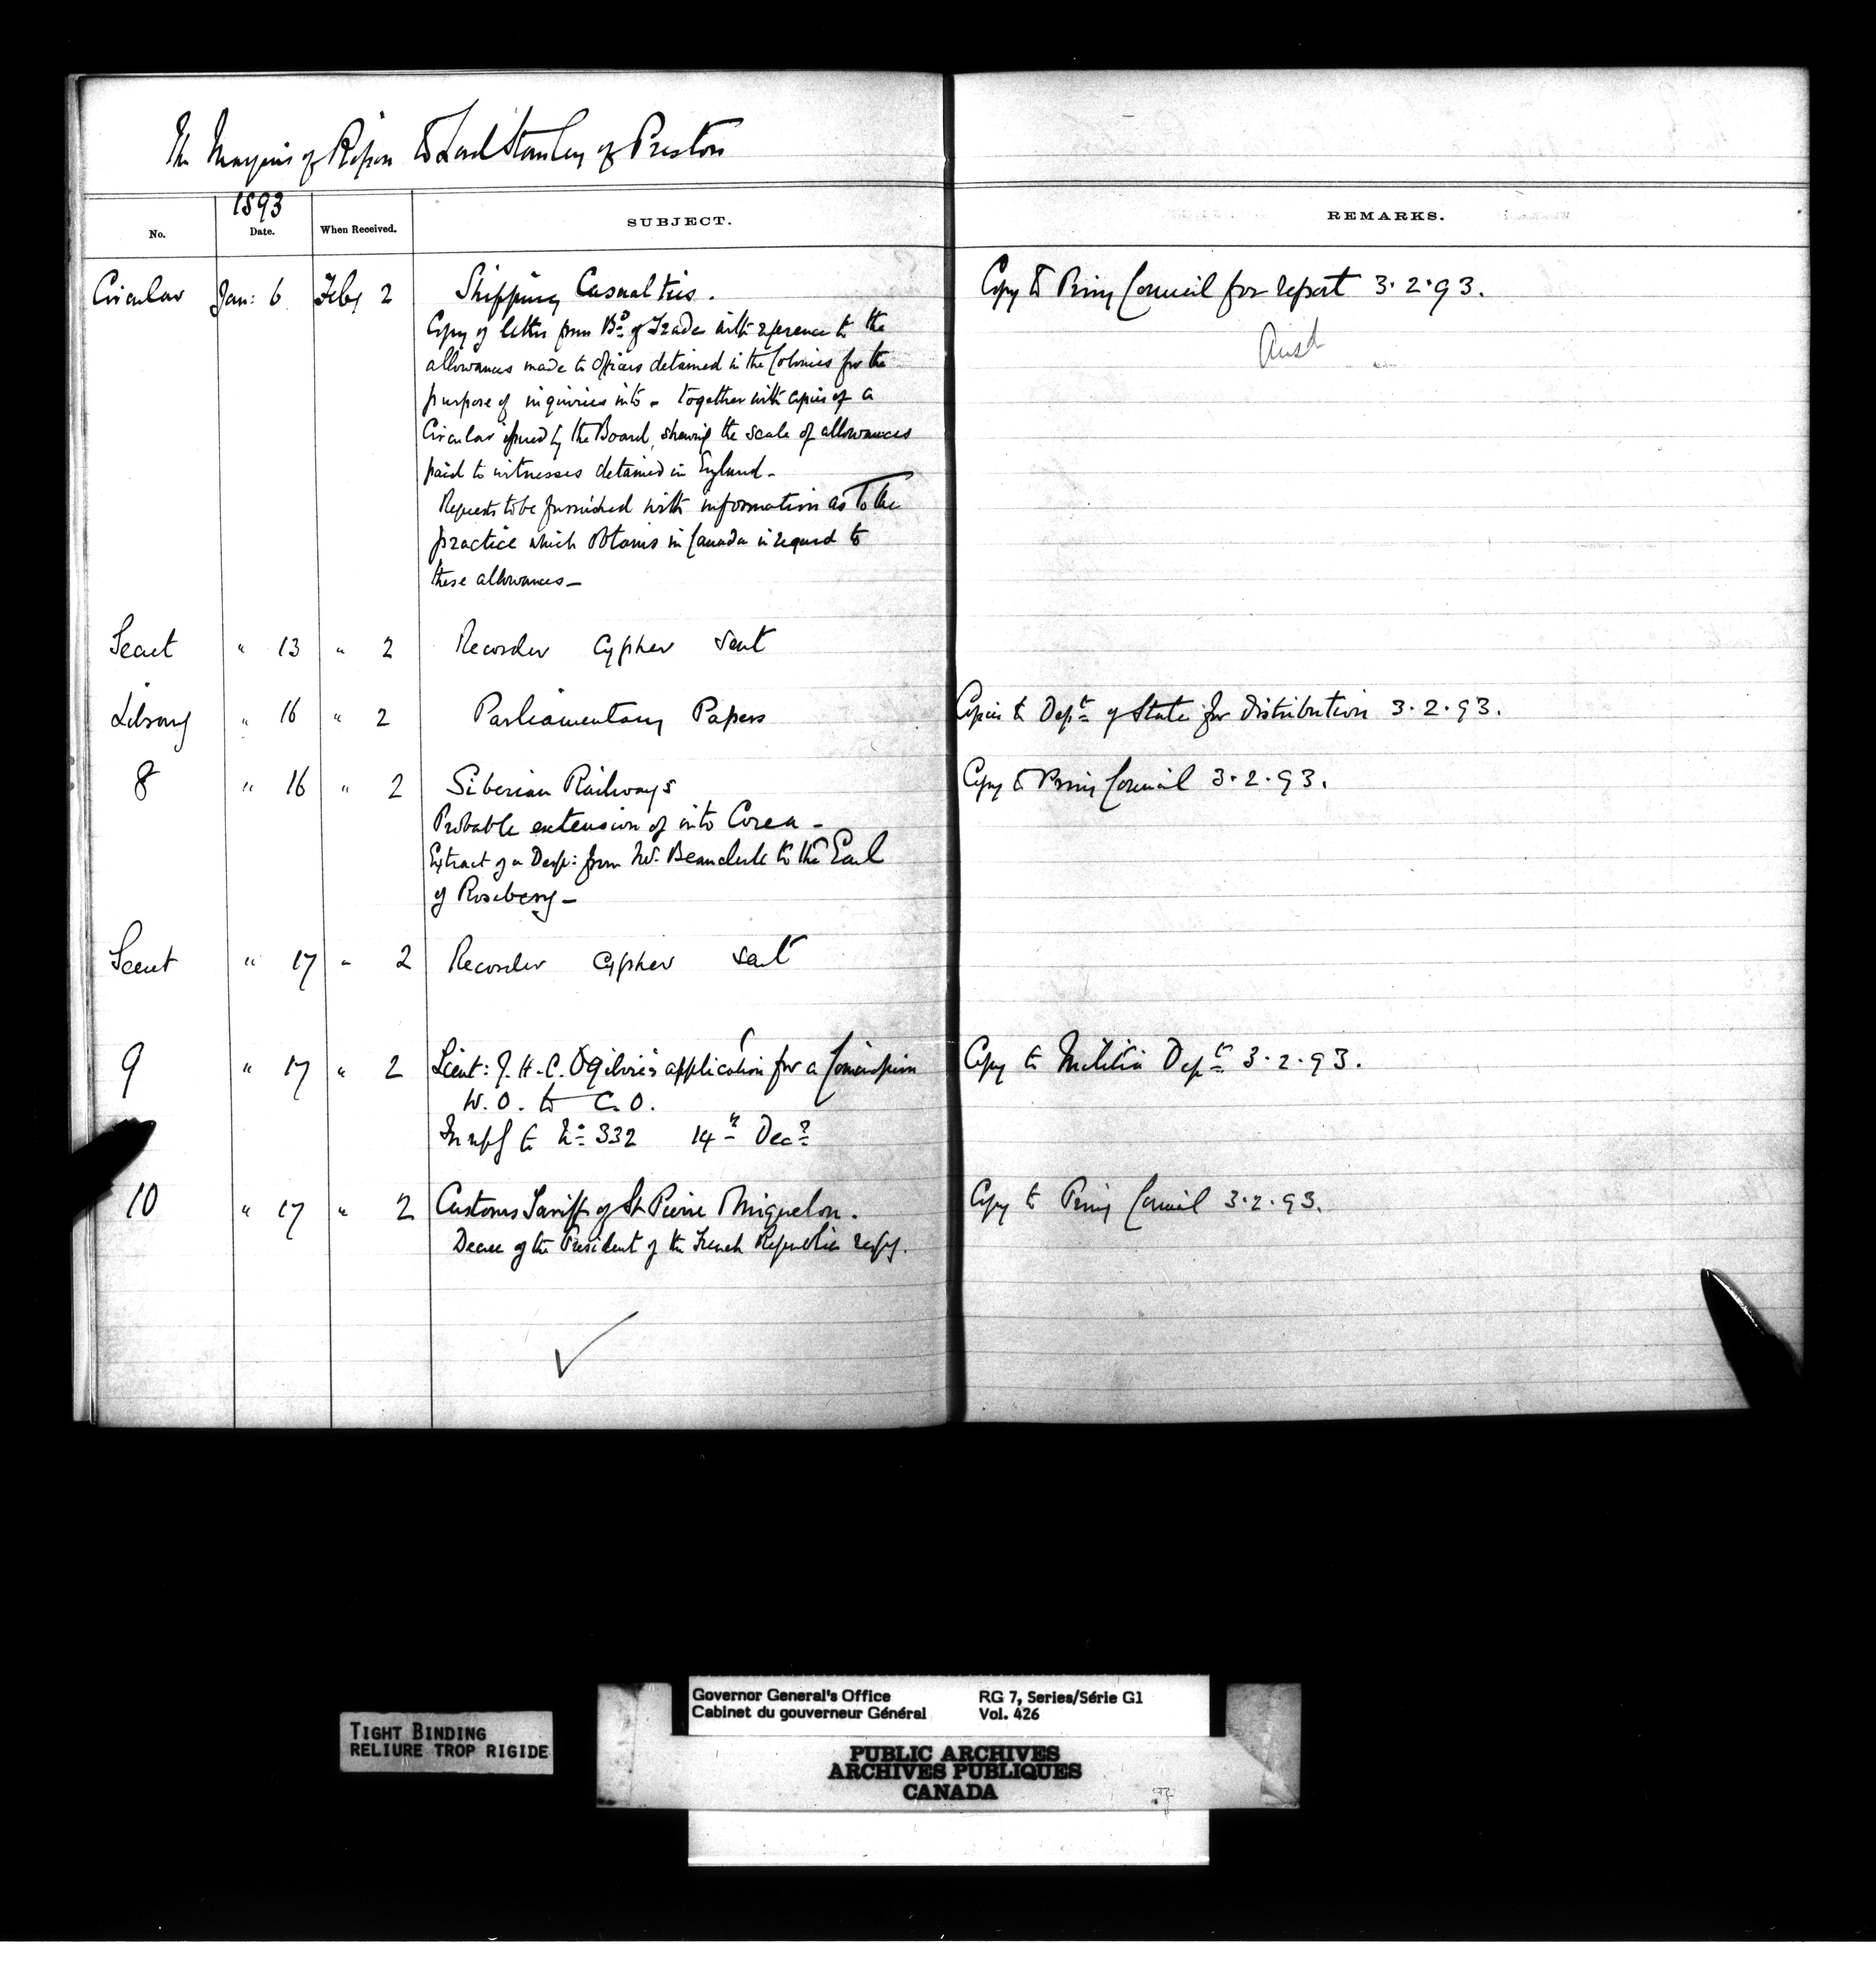 The Marquis of Ripon to Lord Stanley of Preston
1893
No. Date. When Received. SUBJECT. REMARKS.
Circular Jan: 6 Feby 2 Shipping Casualties. Copy to Privy Council for report 3.2.93.
Copy of letter from Bd of Trade with reference to the
allowances made to Officers detained in the Colonies for the
purpose of inquiries into - together with copies of a
Circular issued by the Board, shewing the scale of allowances
paid to witnesses detained in England -
Requests to be furnished with information as to the
practice which obtains in Canada in regard to
these allowances -
Ansd
Secret " 13 " 2 Recorder Cypher sent
Library " 16 " 2 Parliamentary Papers Copies to Dept of State for distribution 3.2.93.
8 " 16 " 2 Siberian Railways Copy to Privy Council 3.2.93.
Probable extension of into Corea -
Extract of a Desp: from Mr. Beauclerk to the Earl
of Rosebery -
Secret " 17 " 2 Recorder Cypher sent
9 " 17 " 2 Lieut: J. H. C. Ogilvie's application for a Commission Copy to Militia Dept 3.2.93.
W. O. to C. O.
In reply to No 332 14th Decr
10 " 17 " 2 Customs Tariff of St Pierre Miquelon. Copy to Privy Council 3.2.93.
Decree of the President of the French Republic respg.
TIGHT BINDING
RELIURE TROP RIGIDE
Governor General's Office RG 7, Series/Série G1
Cabinet du gouverneur Général Vol. 426
PUBLIC ARCHIVES
ARCHIVES PUBLIQUES
CANADA